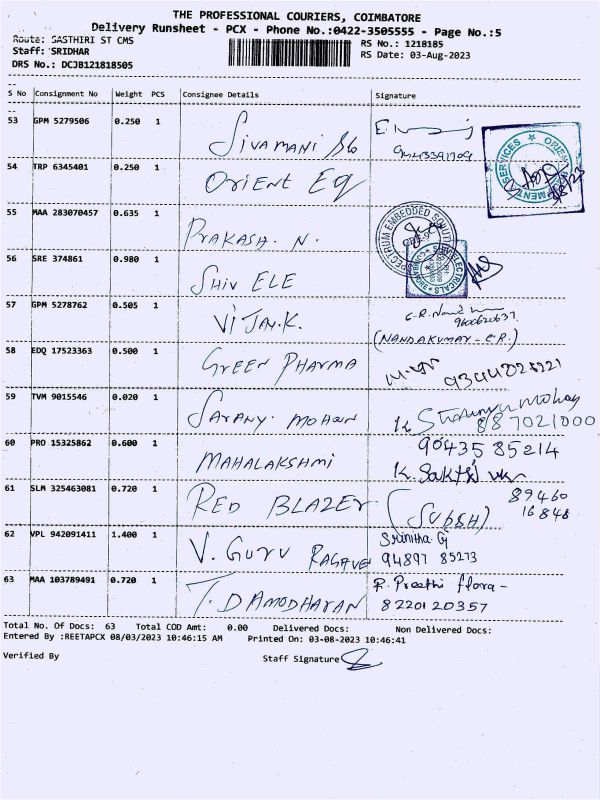 THE PROFESSIONAL COURIERS, COIMBATORE
Delivery Runsheet - PCX - Phone No.:0422-3505555 - Page No.:5
Route: SASTHIRI ST CMS
RS No.: 1218185
Staff: SRIDHAR
RS Date: 03-Aug-2023
DRS No.: DCJB121818505
S No Consignment No Weight PCS Consignee Details Signature
53 GPM 5279506 0.250 1 SIVAMANI
54 TRP 6345401 0.250 1 ORIENT EQ
SERVICES ORIENT
55 MAA 283070457 0.635 1 PRAKASH. N.
SPECTRUM EMBEDDED
56 SRE 374861 0.980 1 SHIV ELE
ELECTRICALS
57 GPM 5278762 0.505 1 VIJAY.K.
9600620637
(NANDAKUMAR - C.R.)
58 EDQ 17523363 0.500 1 GREEN PHARMA
59 TVM 9015546 0.020 1 SARANY. MOHAN
887021000
60 PRO 15325862 0.600 1 MAHALAKSHMI
90435 85214
61 SLM 325463081 0.720 1 RED BLAZER (SUBASH) 89460
16848
62 VPL 942091411 1.400 1 V. GURU RAGAVE Srinitha G
94897 85273
63 MAA 103789491 0.720 1 T. DAMODHARAN R. Preethi flora -
8220120357
Total No. Of Docs: 63 Total COD Amt: 0.00 Delivered Docs: Non Delivered Docs:
Entered By :REETAPCX 08/03/2023 10:46:15 AM Printed On: 03-08-2023 10:46:41
Verified By Staff Signature